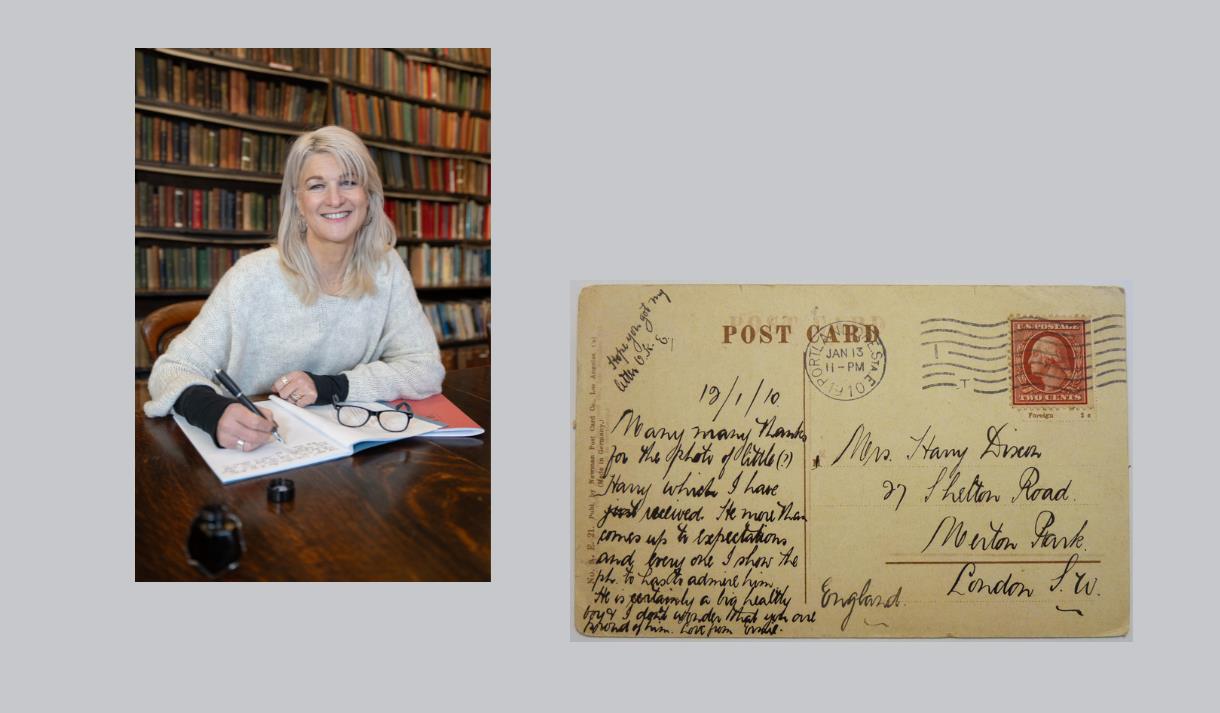 Hope you got my
little
O.K. E.
POST CARD
PORTLAND STA
JAN 13
11-PM
1910
U.S. POSTAGE
TWO CENTS
Foreign 2c
No. A. E. 21. Publ. by Newman Post Card Co., Los Angeles, Ca)
(Made in Germany.)
12/1/10.
Many many thanks
for the photo of little (?)
Harry which I have
just received. He more than
comes up to expectations
and every one I show the
ph. to has to admire him.
He is certainly a big healthy
boy & I don't wonder that you are
proud of him. Love from Ernie.
Mrs. Harry Dixon
27 Shelton Road.
Merton Park.
London S.W.
England.